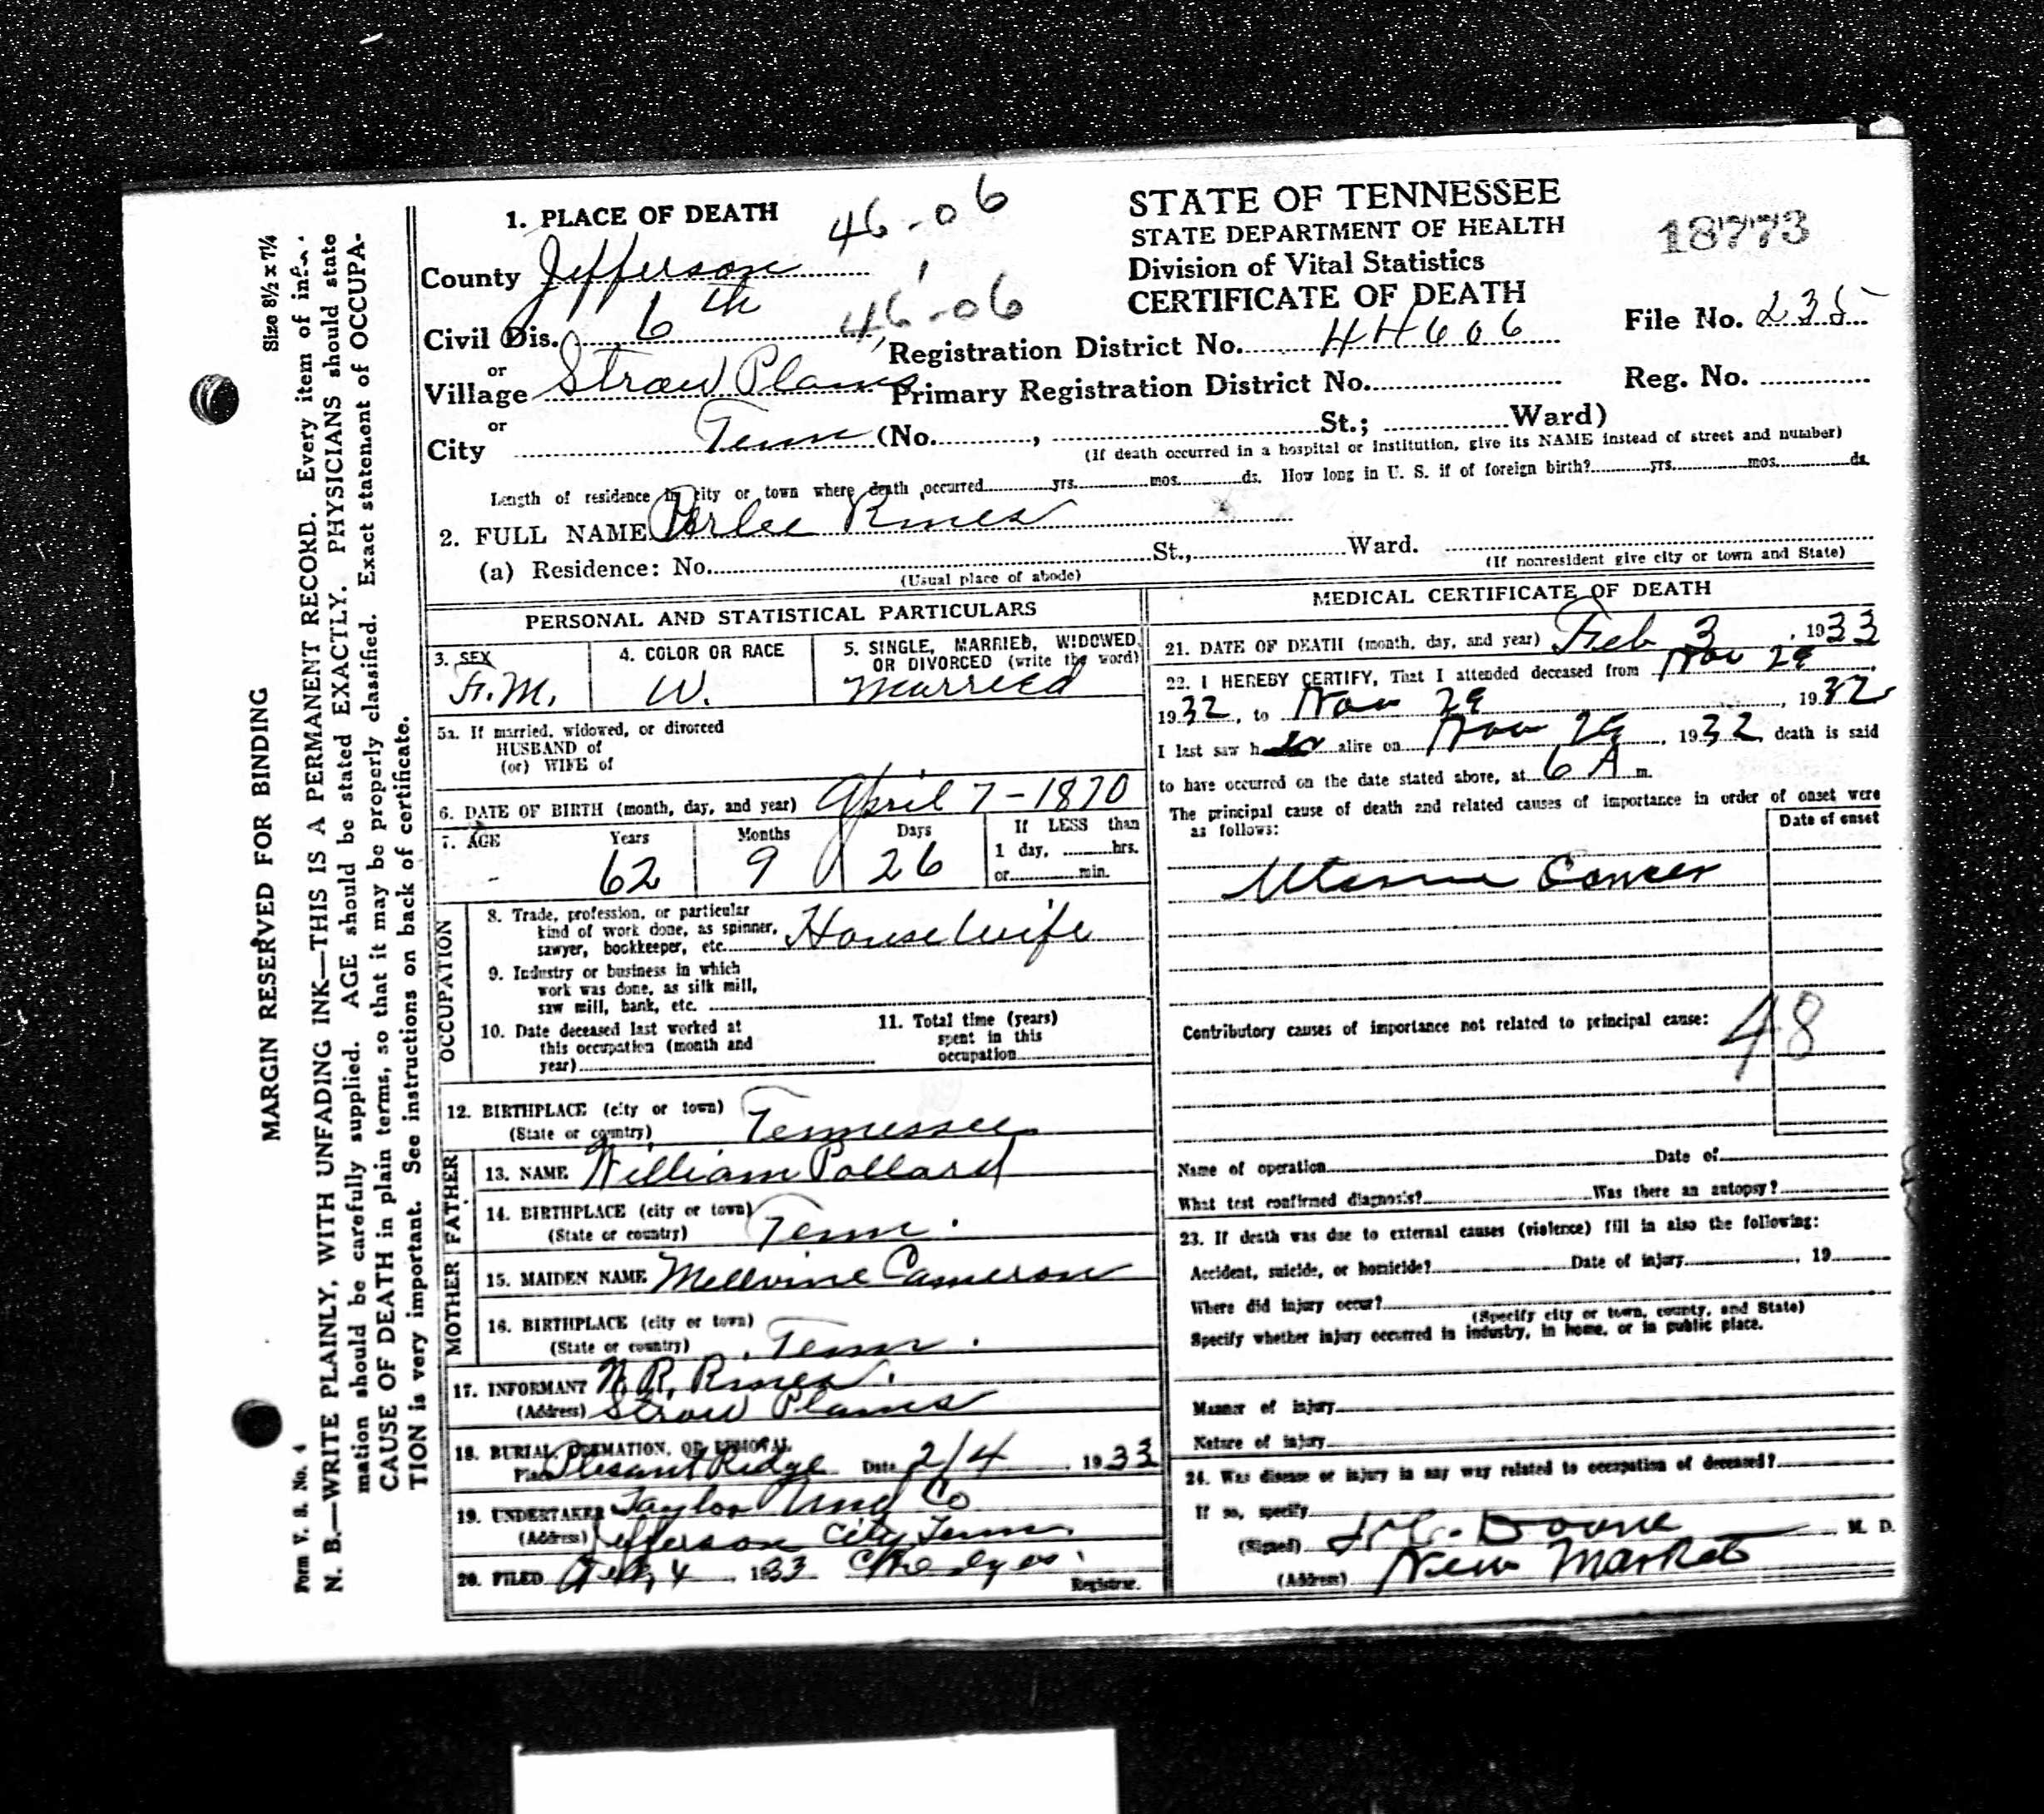 Size 8½ x 7¼
MARGIN RESERVED FOR BINDING
Form V. S. No. 4
N. B.—WRITE PLAINLY, WITH UNFADING INK—THIS IS A PERMANENT RECORD. Every item of infor-
mation should be carefully supplied. AGE should be stated EXACTLY. PHYSICIANS should state
CAUSE OF DEATH in plain terms, so that it may be properly classified. Exact statement of OCCUPA-
TION is very important. See instructions on back of certificate.
1. PLACE OF DEATH 46-06
County Jefferson
Civil Dis. 6th 46-06
or
Village Straw Plains
or
City Tenn (No. , St.; Ward)
STATE OF TENNESSEE
STATE DEPARTMENT OF HEALTH
Division of Vital Statistics
CERTIFICATE OF DEATH
18773
Registration District No. 44606
File No. 235
Primary Registration District No.
Reg. No.
(If death occurred in a hospital or institution, give its NAME instead of street and number)
Length of residence in city or town where death occurred yrs. mos. ds. How long in U. S. if of foreign birth? yrs. mos. ds.
2. FULL NAME Perlee Rines
(a) Residence: No. St., Ward.
(Usual place of abode) (If nonresident give city or town and State)
PERSONAL AND STATISTICAL PARTICULARS
3. SEX 4. COLOR OR RACE 5. SINGLE, MARRIED, WIDOWED,
OR DIVORCED (write the word)
F.M. W. Married
5a. If married, widowed, or divorced
HUSBAND of
(or) WIFE of
6. DATE OF BIRTH (month, day, and year) April 7-1870
7. AGE Years Months Days If LESS than
1 day, hrs.
or min.
62 9 26
OCCUPATION
8. Trade, profession, or particular
kind of work done, as spinner,
sawyer, bookkeeper, etc. House Wife
9. Industry or business in which
work was done, as silk mill,
saw mill, bank, etc.
10. Date deceased last worked at
this occupation (month and
year)
11. Total time (years)
spent in this
occupation
12. BIRTHPLACE (city or town)
(State or country) Tennessee
FATHER
13. NAME William Pollard
14. BIRTHPLACE (city or town)
(State or country) Tenn.
MOTHER
15. MAIDEN NAME Mellvine Cameron
16. BIRTHPLACE (city or town)
(State or country) Tenn.
17. INFORMANT W. R. Rines.
(Address) Straw Plains
18. BURIAL, CREMATION, OR REMOVAL
Place Plesant Ridge Date 2/4, 1933
19. UNDERTAKER Taylor Und Co
(Address) Jefferson City Tenn.
20. FILED Feb, 4 1933
Registrar.
MEDICAL CERTIFICATE OF DEATH
21. DATE OF DEATH (month, day, and year) Feb 3, 1933
22. I HEREBY CERTIFY, That I attended deceased from Nov 29,
1932, to Nov 29, 1932
I last saw her alive on Nov 29, 1932, death is said
to have occurred on the date stated above, at 6 A m.
The principal cause of death and related causes of importance in order of onset were
as follows:
Date of onset
Uterine Cancer
Contributory causes of importance not related to principal cause:
48
Name of operation Date of
What test confirmed diagnosis? Was there an autopsy?
23. If death was due to external causes (violence) fill in also the following:
Accident, suicide, or homicide? Date of injury , 19
Where did injury occur?
(Specify city or town, county, and State)
Specify whether injury occurred in industry, in home, or in public place.
Manner of injury
Nature of injury
24. Was disease or injury in any way related to occupation of deceased?
If so, specify
(Signed) Doane, M. D.
(Address) New Market